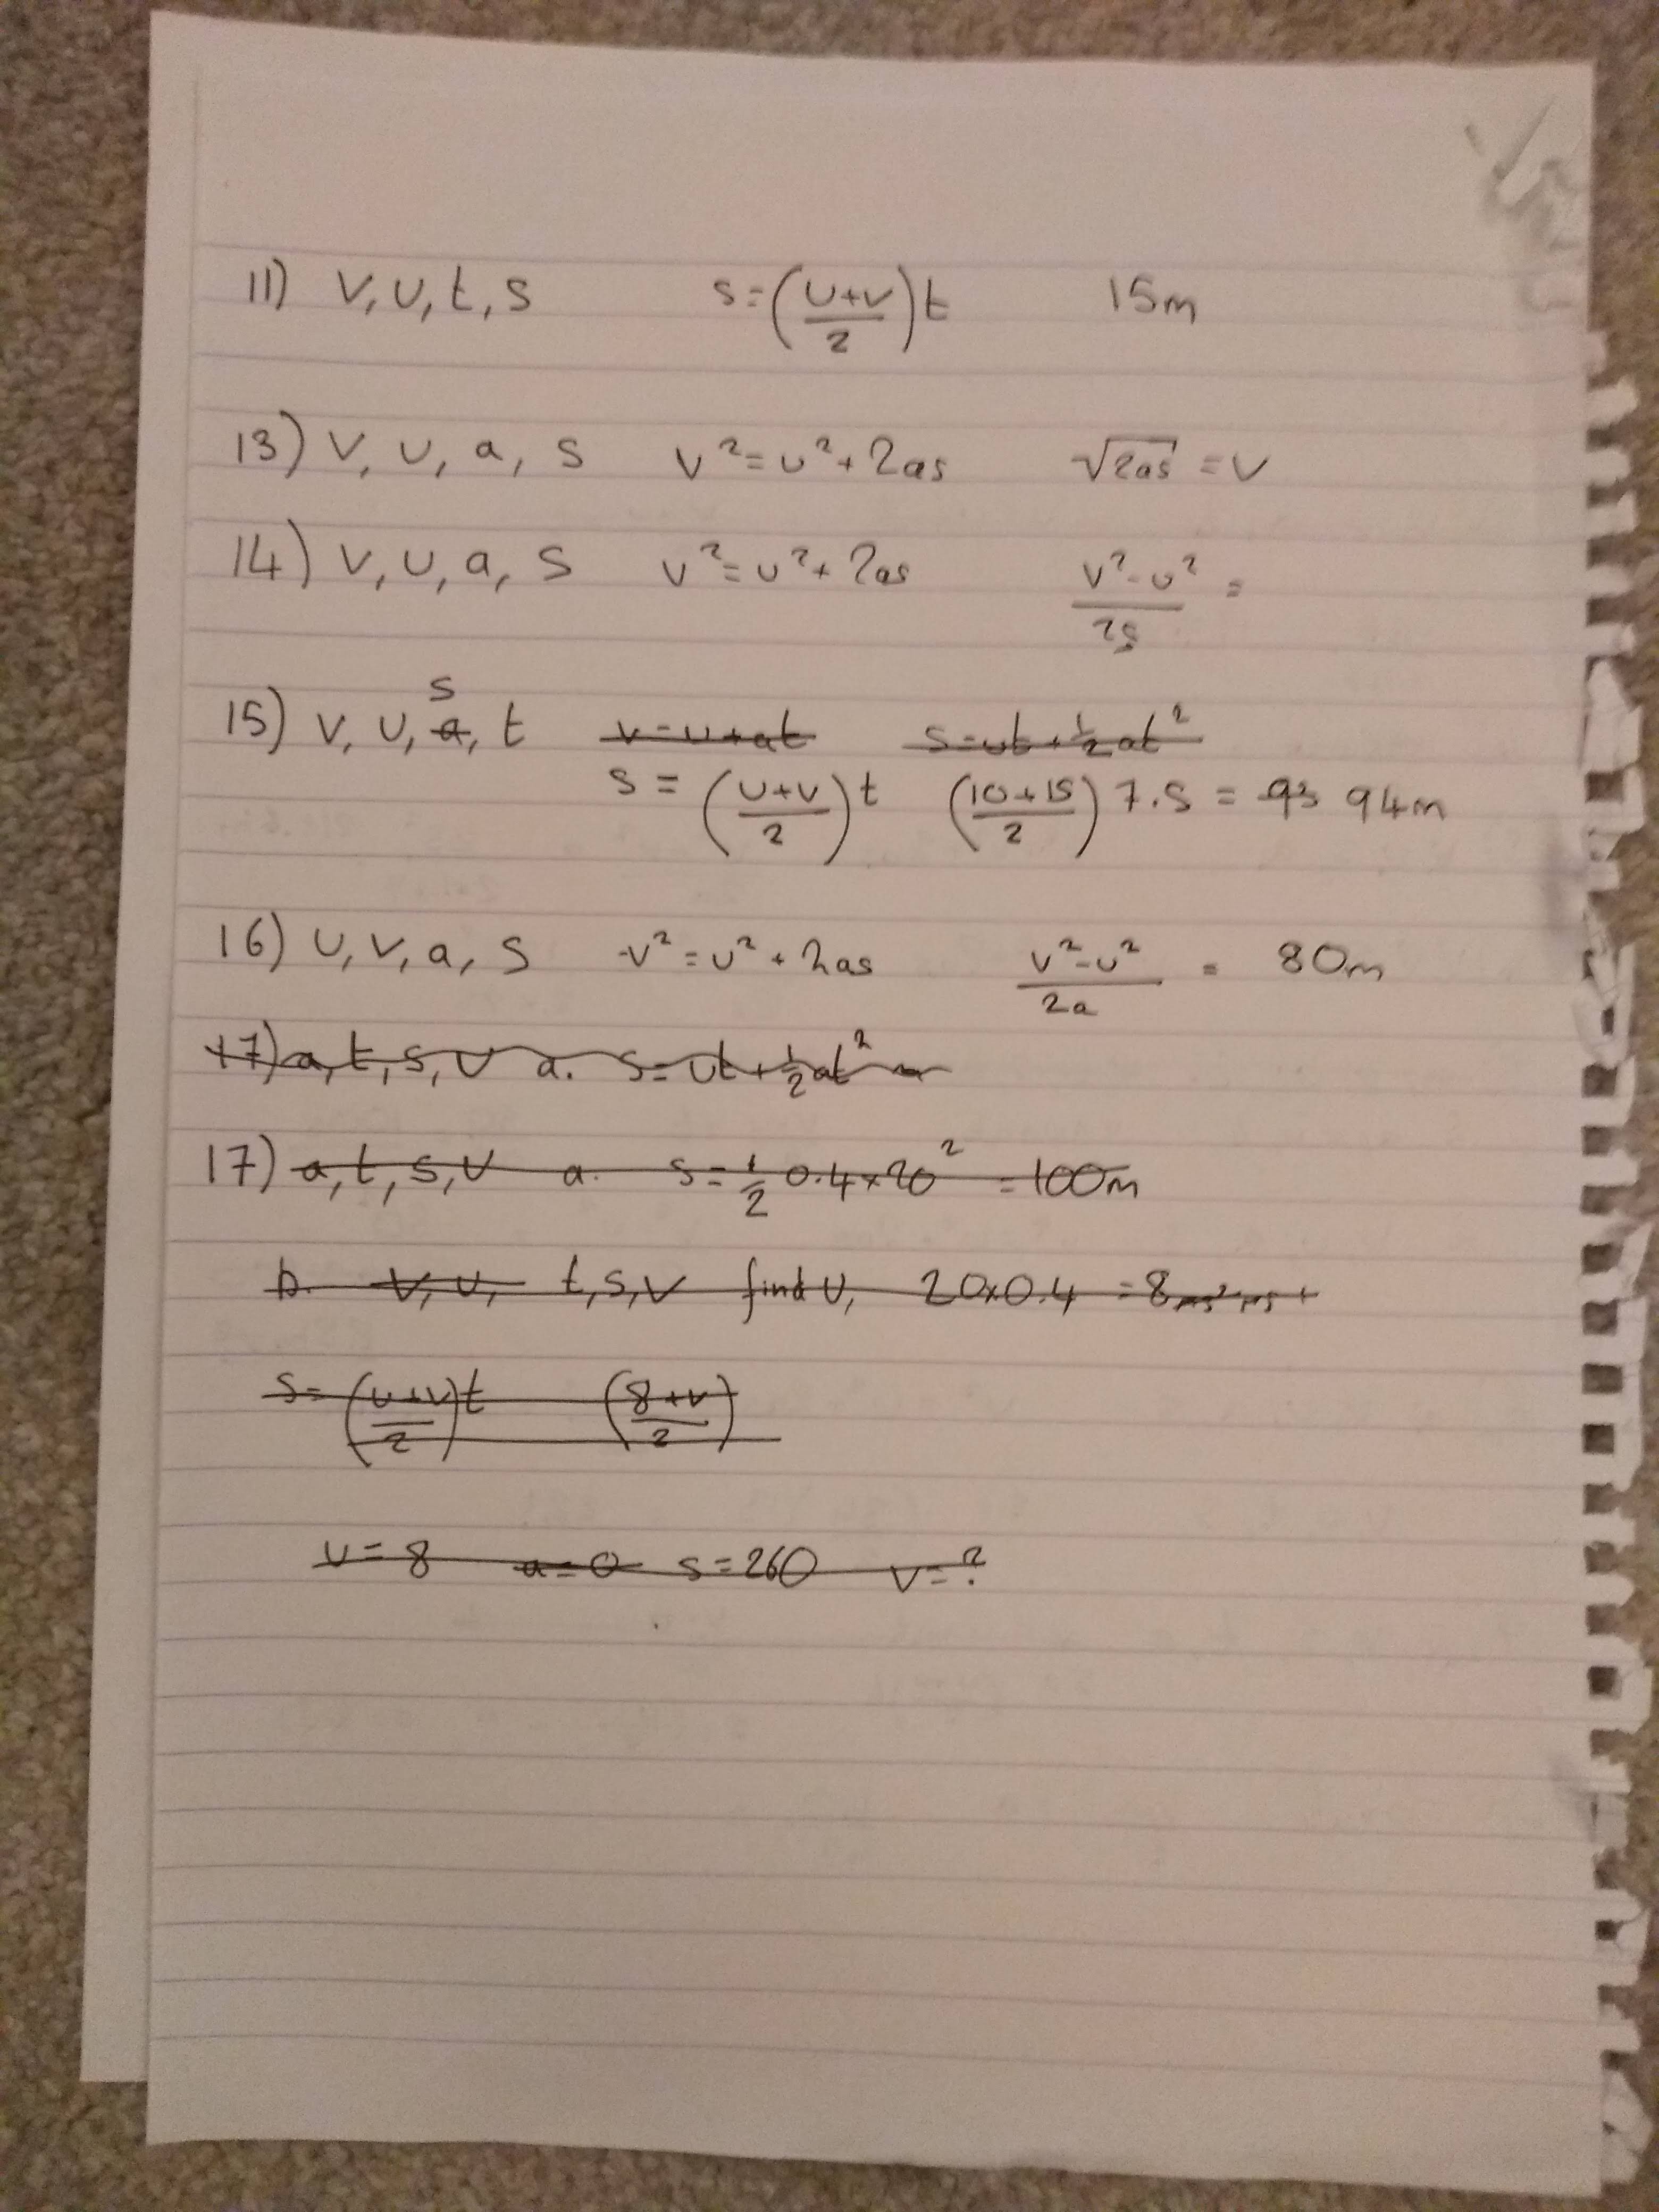 11) v, u, t, s s=(u+v/2)t 15m
13) v, u, a, s v²=u²+2as √2as = v
14) v, u, a, s v²=u²+2as v²-u²/2s =
s
15) v, u, a, t v=u+at s=ut+½at²
s = (u+v/2)t (10+15/2) 7.5 = 93 94m
16) u, v, a, s v²=u²+2as v²-u²/2a = 80m
17) a, t, s, u a. s=ut+½at²
17) a, t, s, u a. s=½ 0.4×20² = 100m
b. v, u, t, s, v find u, 20×0.4 = 8
s=(u+v/2)t (8+v/2)
u=8 a=0 s=260 v=?